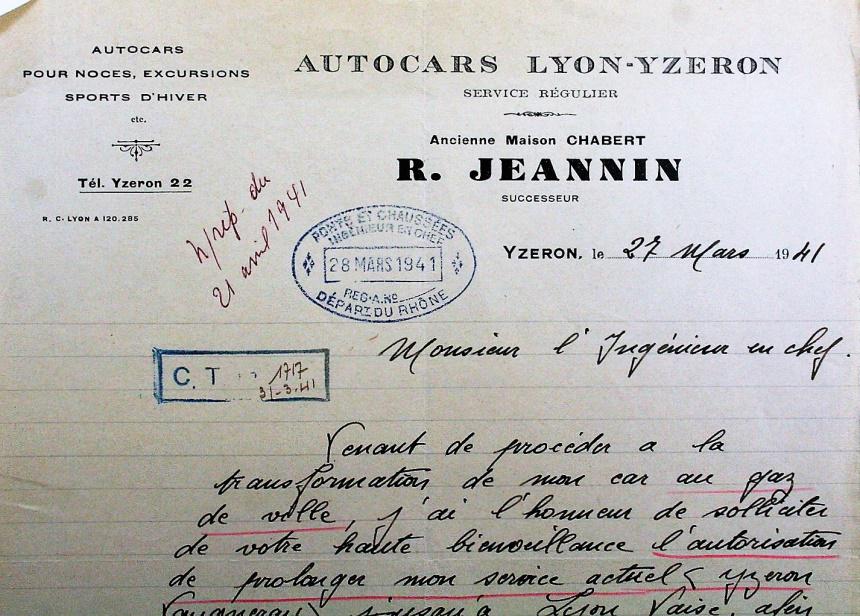 AUTOCARS
POUR NOCES, EXCURSIONS
SPORTS D'HIVER
etc.
Tél. Yzeron 22
R. C. LYON A 120.285
AUTOCARS LYON-YZERON
SERVICE RÉGULIER
Ancienne Maison CHABERT
R. JEANNIN
SUCCESSEUR
n/rép. du
21 avril 1941
PONTS ET CHAUSSÉES
INGÉNIEUR EN CHEF
28 MARS 1941
REG. A. No
DÉPART. DU RHÔNE
YZERON, le 27 Mars 1941
Monsieur l'Ingénieur en chef.
C. T 1717
31-3-41
Venant de procéder a la
transformation de mon car au gaz
de ville, j'ai l'honneur de solliciter
de votre haute bienveillance l'autorisation
de prolonger mon service actuel ( Yzeron
Vaugneray) jusqu'à Lyon Vaise, afin